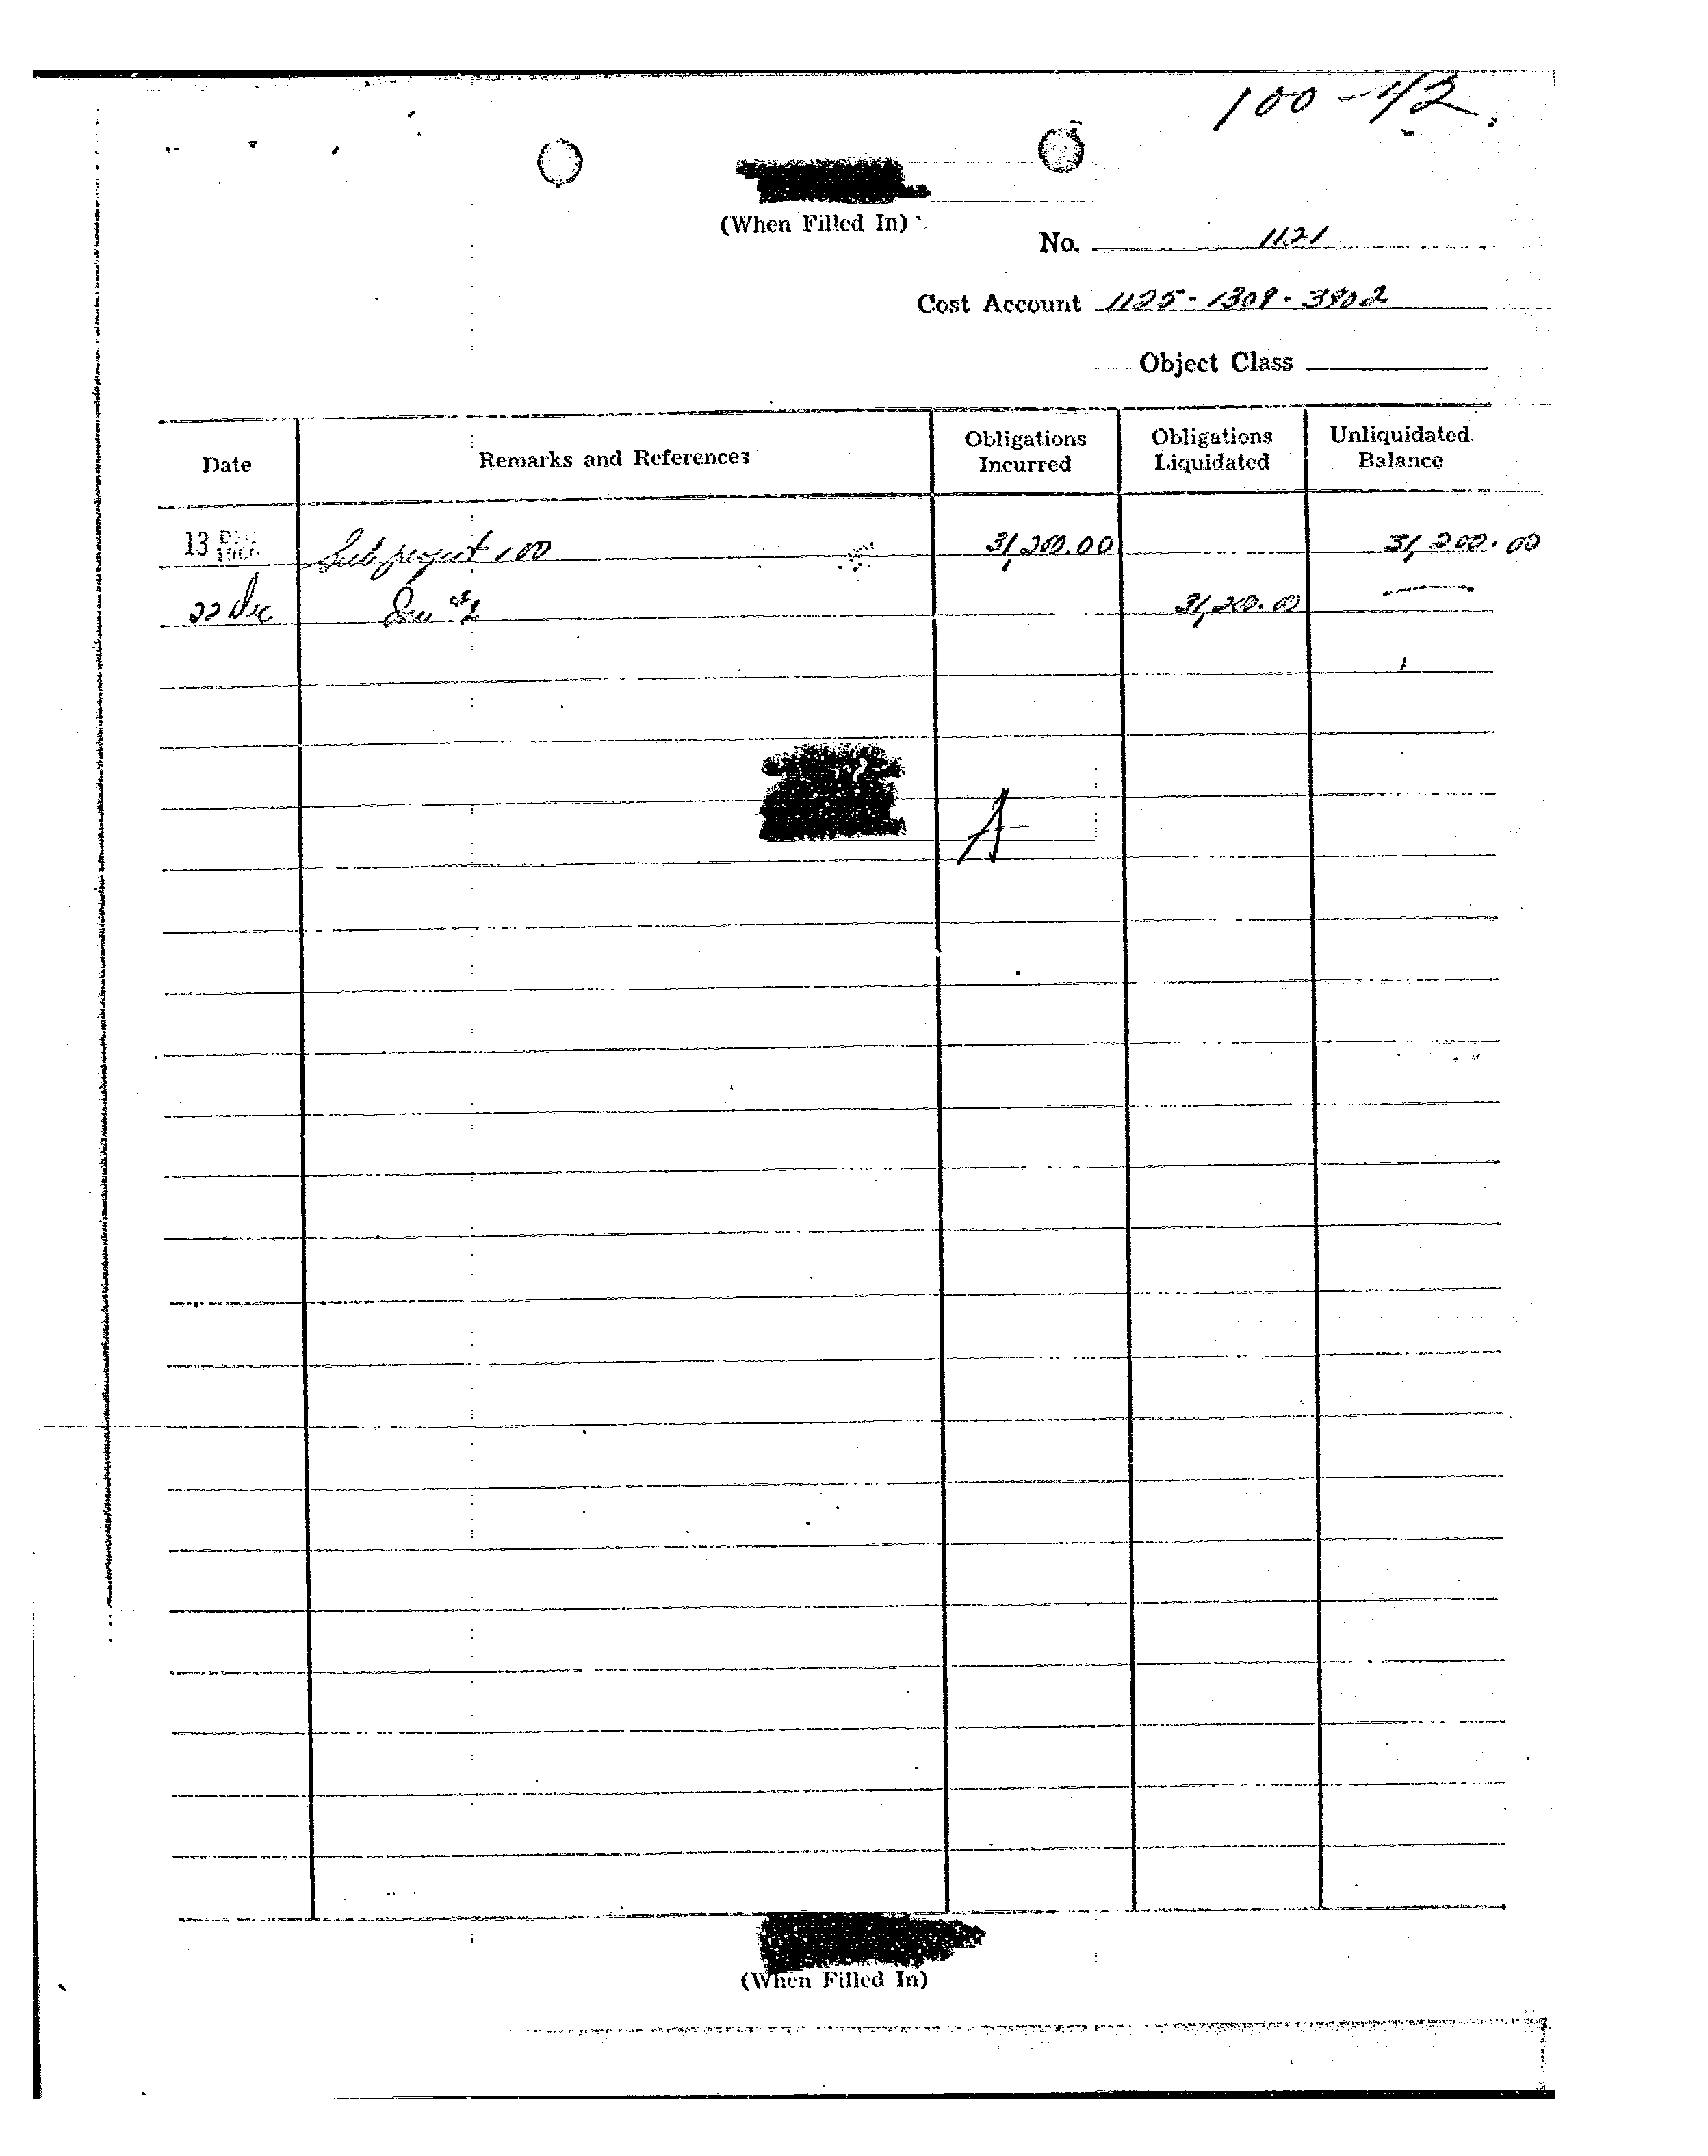 100-42
(When Filled In)
No. 1121
Cost Account 1125-1309-3902
Object Class
Date Remarks and References Obligations Incurred Obligations Liquidated Unliquidated Balance
13 DEC Subproject 100 31,200.00 31,200.00
22 Dec Inv #1 31,200.00 —
A
(When Filled In)